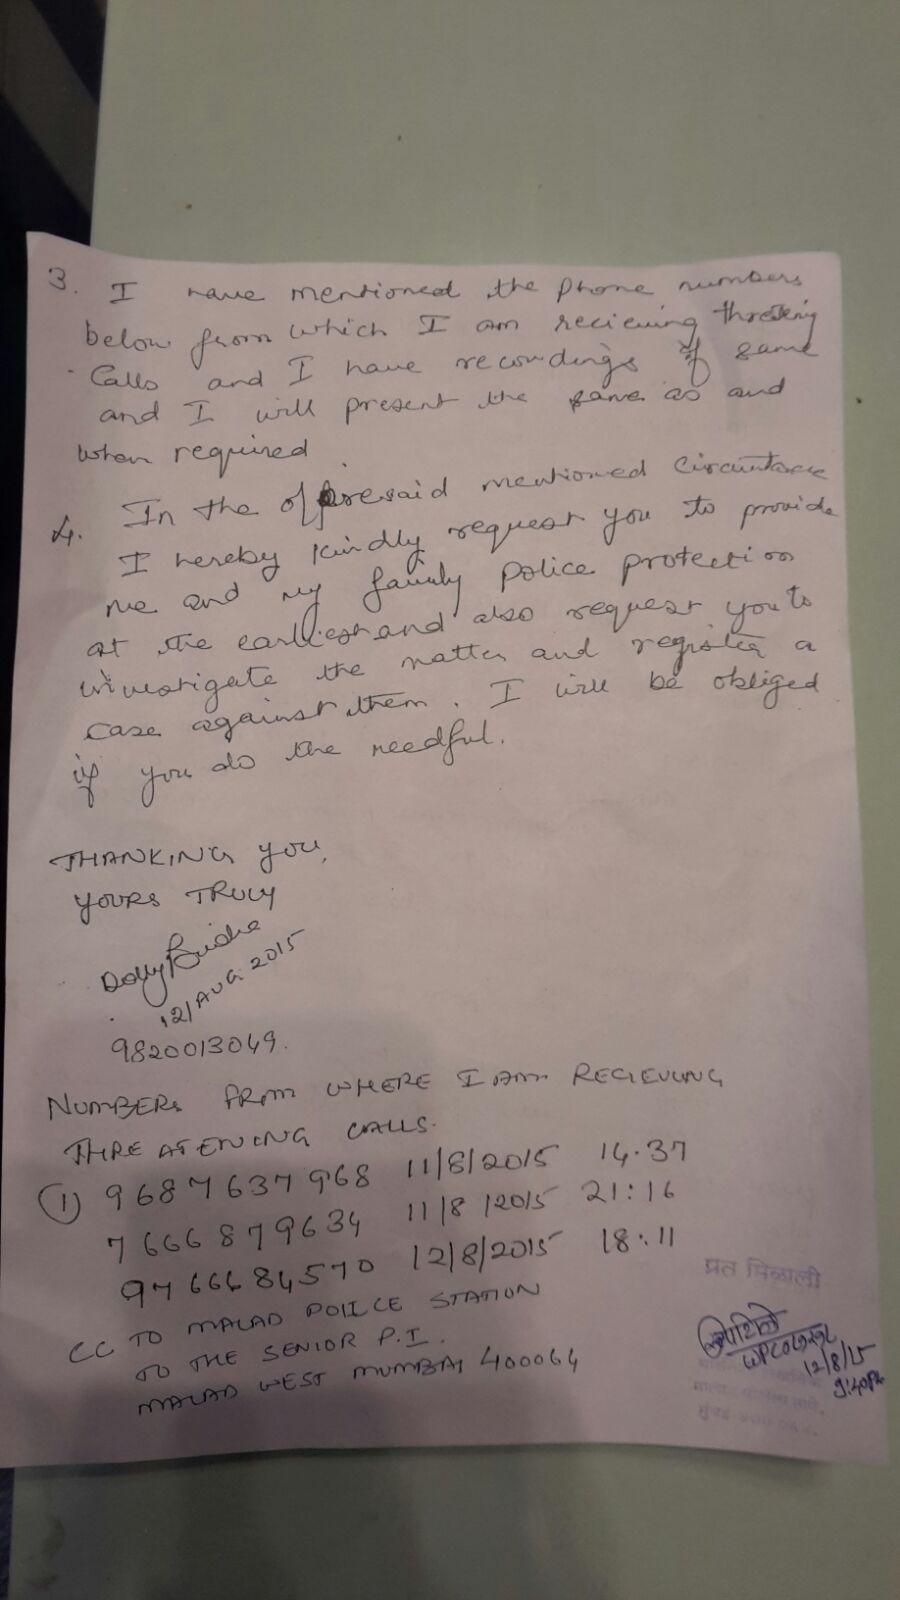 3. I have mentioned the phone numbers
below from which I am recieving threteing
calls and I have recordings of same
and I will present the same as and
when required
4. In the oforesaid mentioned circumtance
I hereby kindly request you to provide
me and my family police protection
at the earliest and also request you to
investigate the matter and register a
case against them. I will be obliged
if you do the needful.
THANKING YOU,
YOURS TRULY
Dolly Bindra
12/AUG 2015
9820013049.
NUMBERS FROM WHERE I AM RECIEVING
THREATENING CALLS.
① 9687637968 11/8/2015 14.37
7666879634 11/8/2015 21:16
9766684570 12/8/2015 18:11
CC TO MALAD POLICE STATION
TO THE SENIOR P.I.
MALAD WEST MUMBAI 400064
प्रत मिळाली
12/8/15
9:40PM